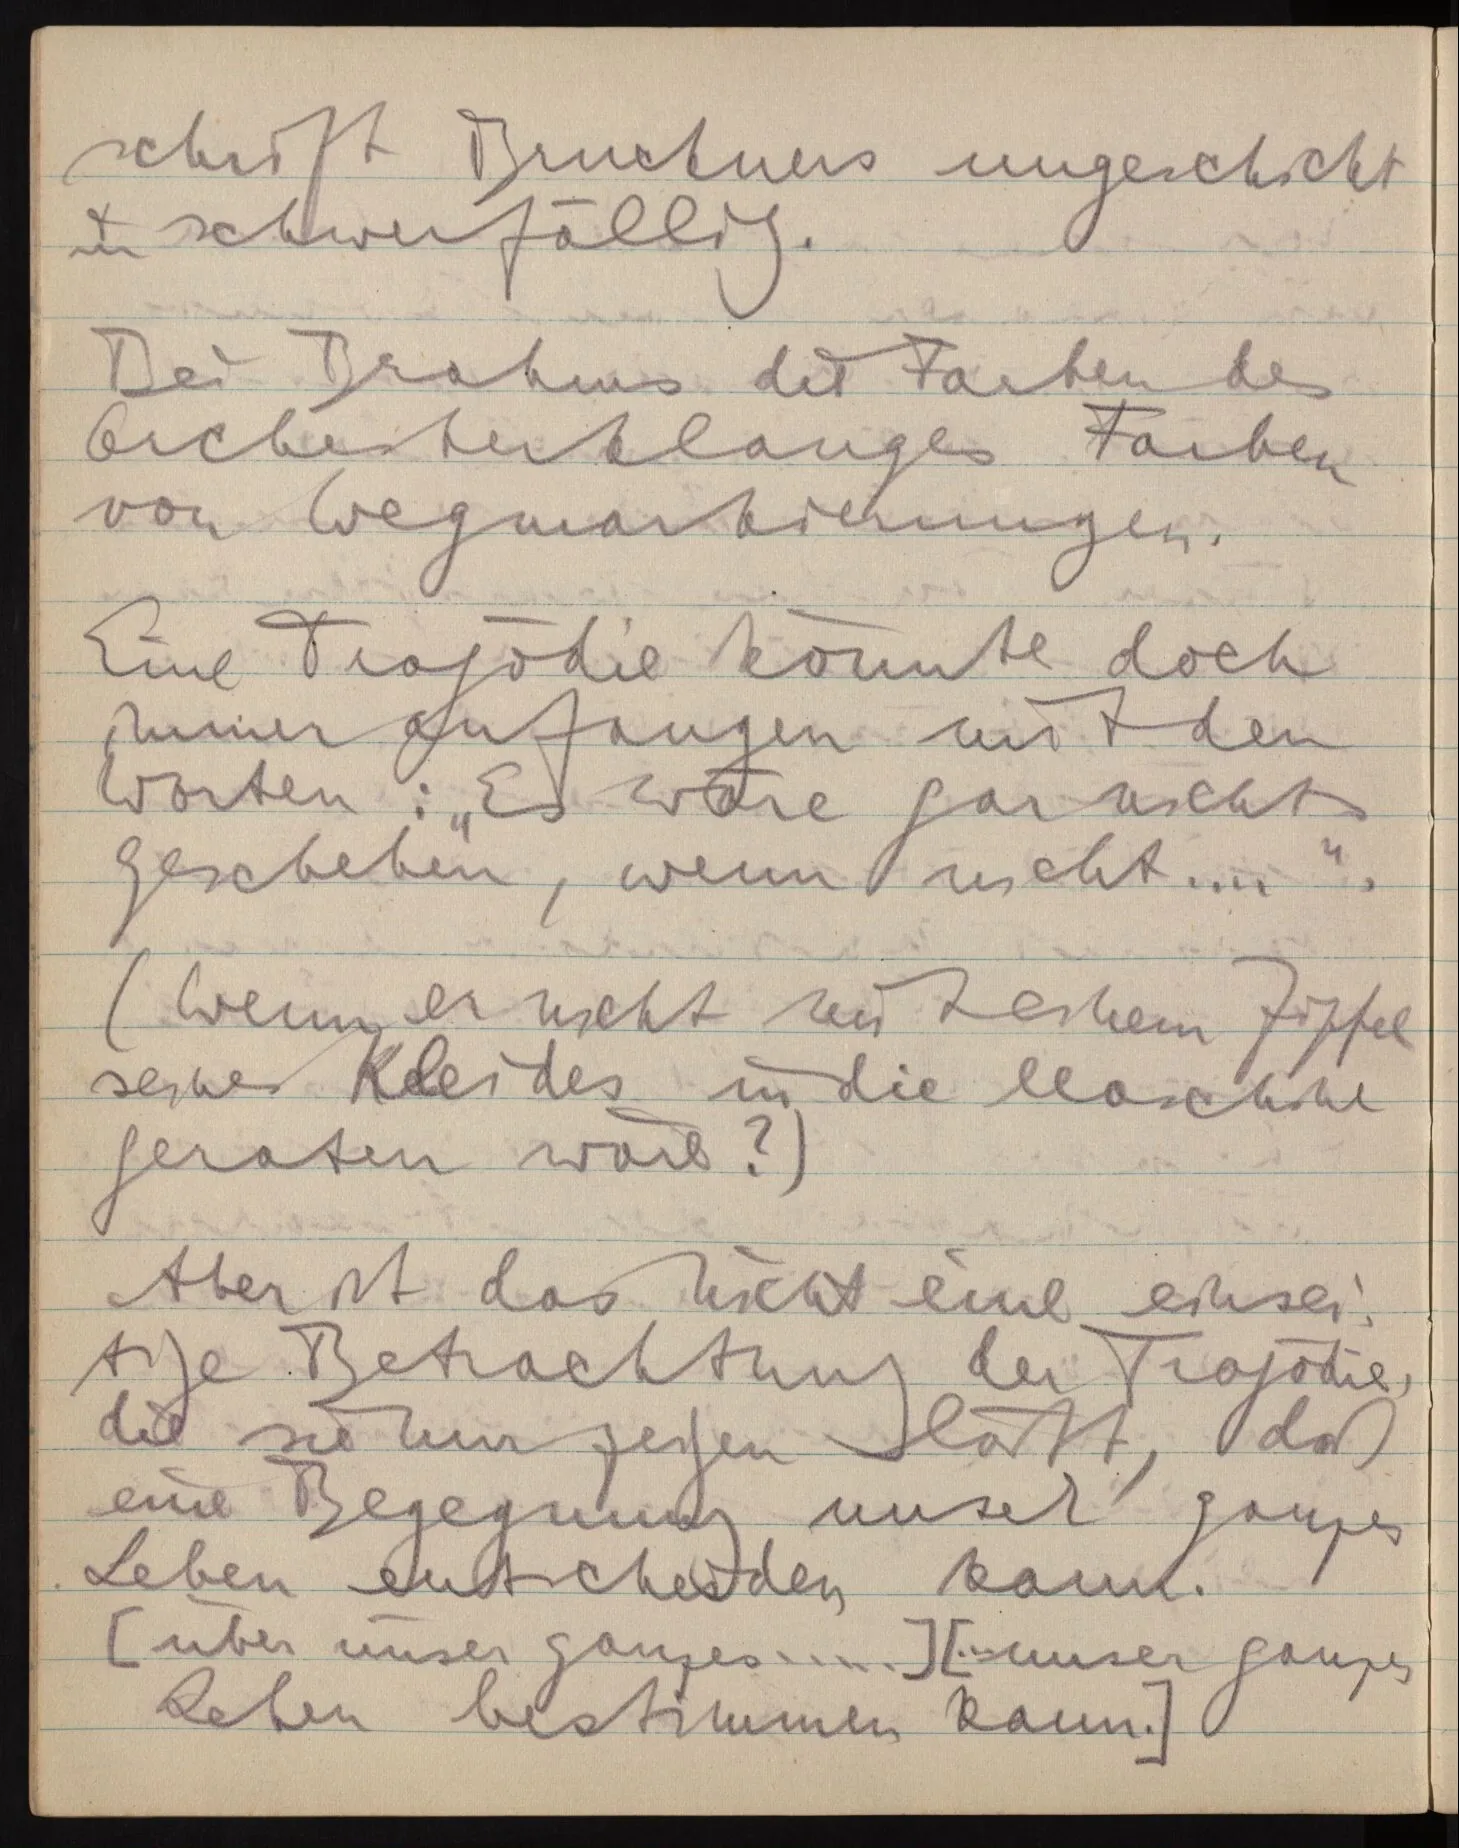 schrift Bruckners ungeschickt
u schwerfällig.
Bei Brahms die Farben des
Orchesterklanges Farben
von Wegmarkierungen.
Eine Tragödie könnte doch
immer anfangen mit den
Worten: „Es wäre gar nichts
geschehen, wenn nicht .... “.
(Wenn er nicht mit einem Zipfel
seines Kleides in die Maschine
geraten wäre?)
Aber ist das nicht eine einsei-
tige Betrachtung der Tragödie,
die sie nur zeigen läßt, daß
eine Begegnung unser ganzes
Leben entscheiden kann.
[über unser ganzes .....] [...unser ganzes
Leben bestimmen kann.]